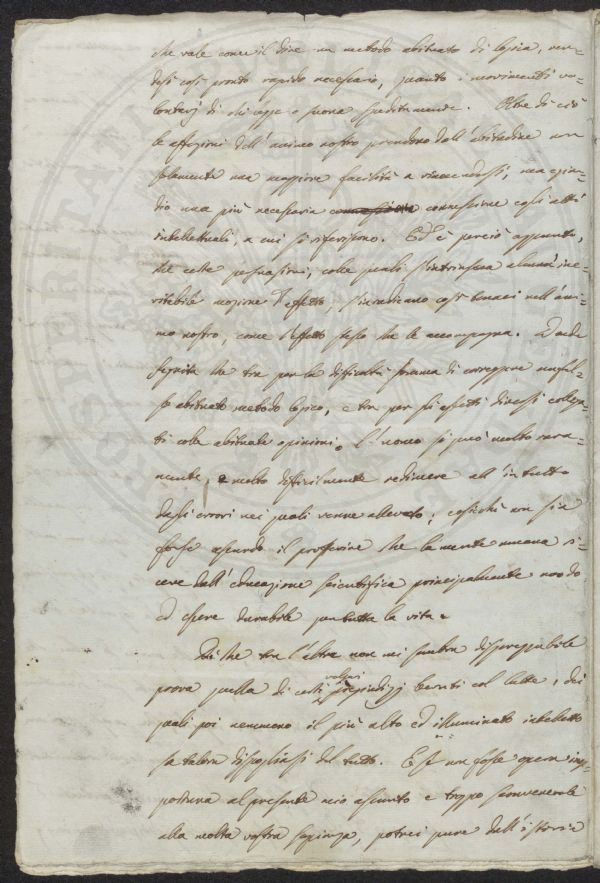 che vale come il dire un metodo abituato di logica, ren-
desi così pronto rapido necessario, quanto i movimenti vo-
lontarj di chi legge o suona speditamente. Oltre di ciò
le affezioni dell'animo nostro prendono dall'abitudine non
solamente una maggiore facilità a rinnovarsi, ma ezian-
dio una più necessaria connessione cogli atti
intellettuali, a cui si riferiscono. Ed è perciò appunto,
che certe persuasioni, colle quali s'intrinseca alcuna ine-
vitabile mozione d'affetto, si radicano così tenaci nell'ani-
mo nostro, come l'affetto stesso che le accompagna. Donde
seguita che tra per la difficoltà somma di correggere un fal-
so abituato metodo logico, e tra per gli affetti diversi collega-
ti colle abituate opinioni, l'uomo si può molto rara-
mente, e molto difficilmente redimere al intutto
dagli errori nei quali venne allevato; cosichè non sia
forse assurdo il profferire che la mente umana ri-
ceve dall'educazione scientifica principalmente modo
ed essere durabile per tutta la vita.
Di che tra l'altre non mi sembra dispreggiabile
prova quella di certi volgari pregiudizj bevuti col latte, dei
quali poi nemmeno il più alto ed illuminato intelletto
sa talora dispogliarsi del tutto. E se non fosse opera inop-
portuna al presente mio assunto e troppo sconvenevole
alla molta vostra sapienza, potrei pure dall'istoria